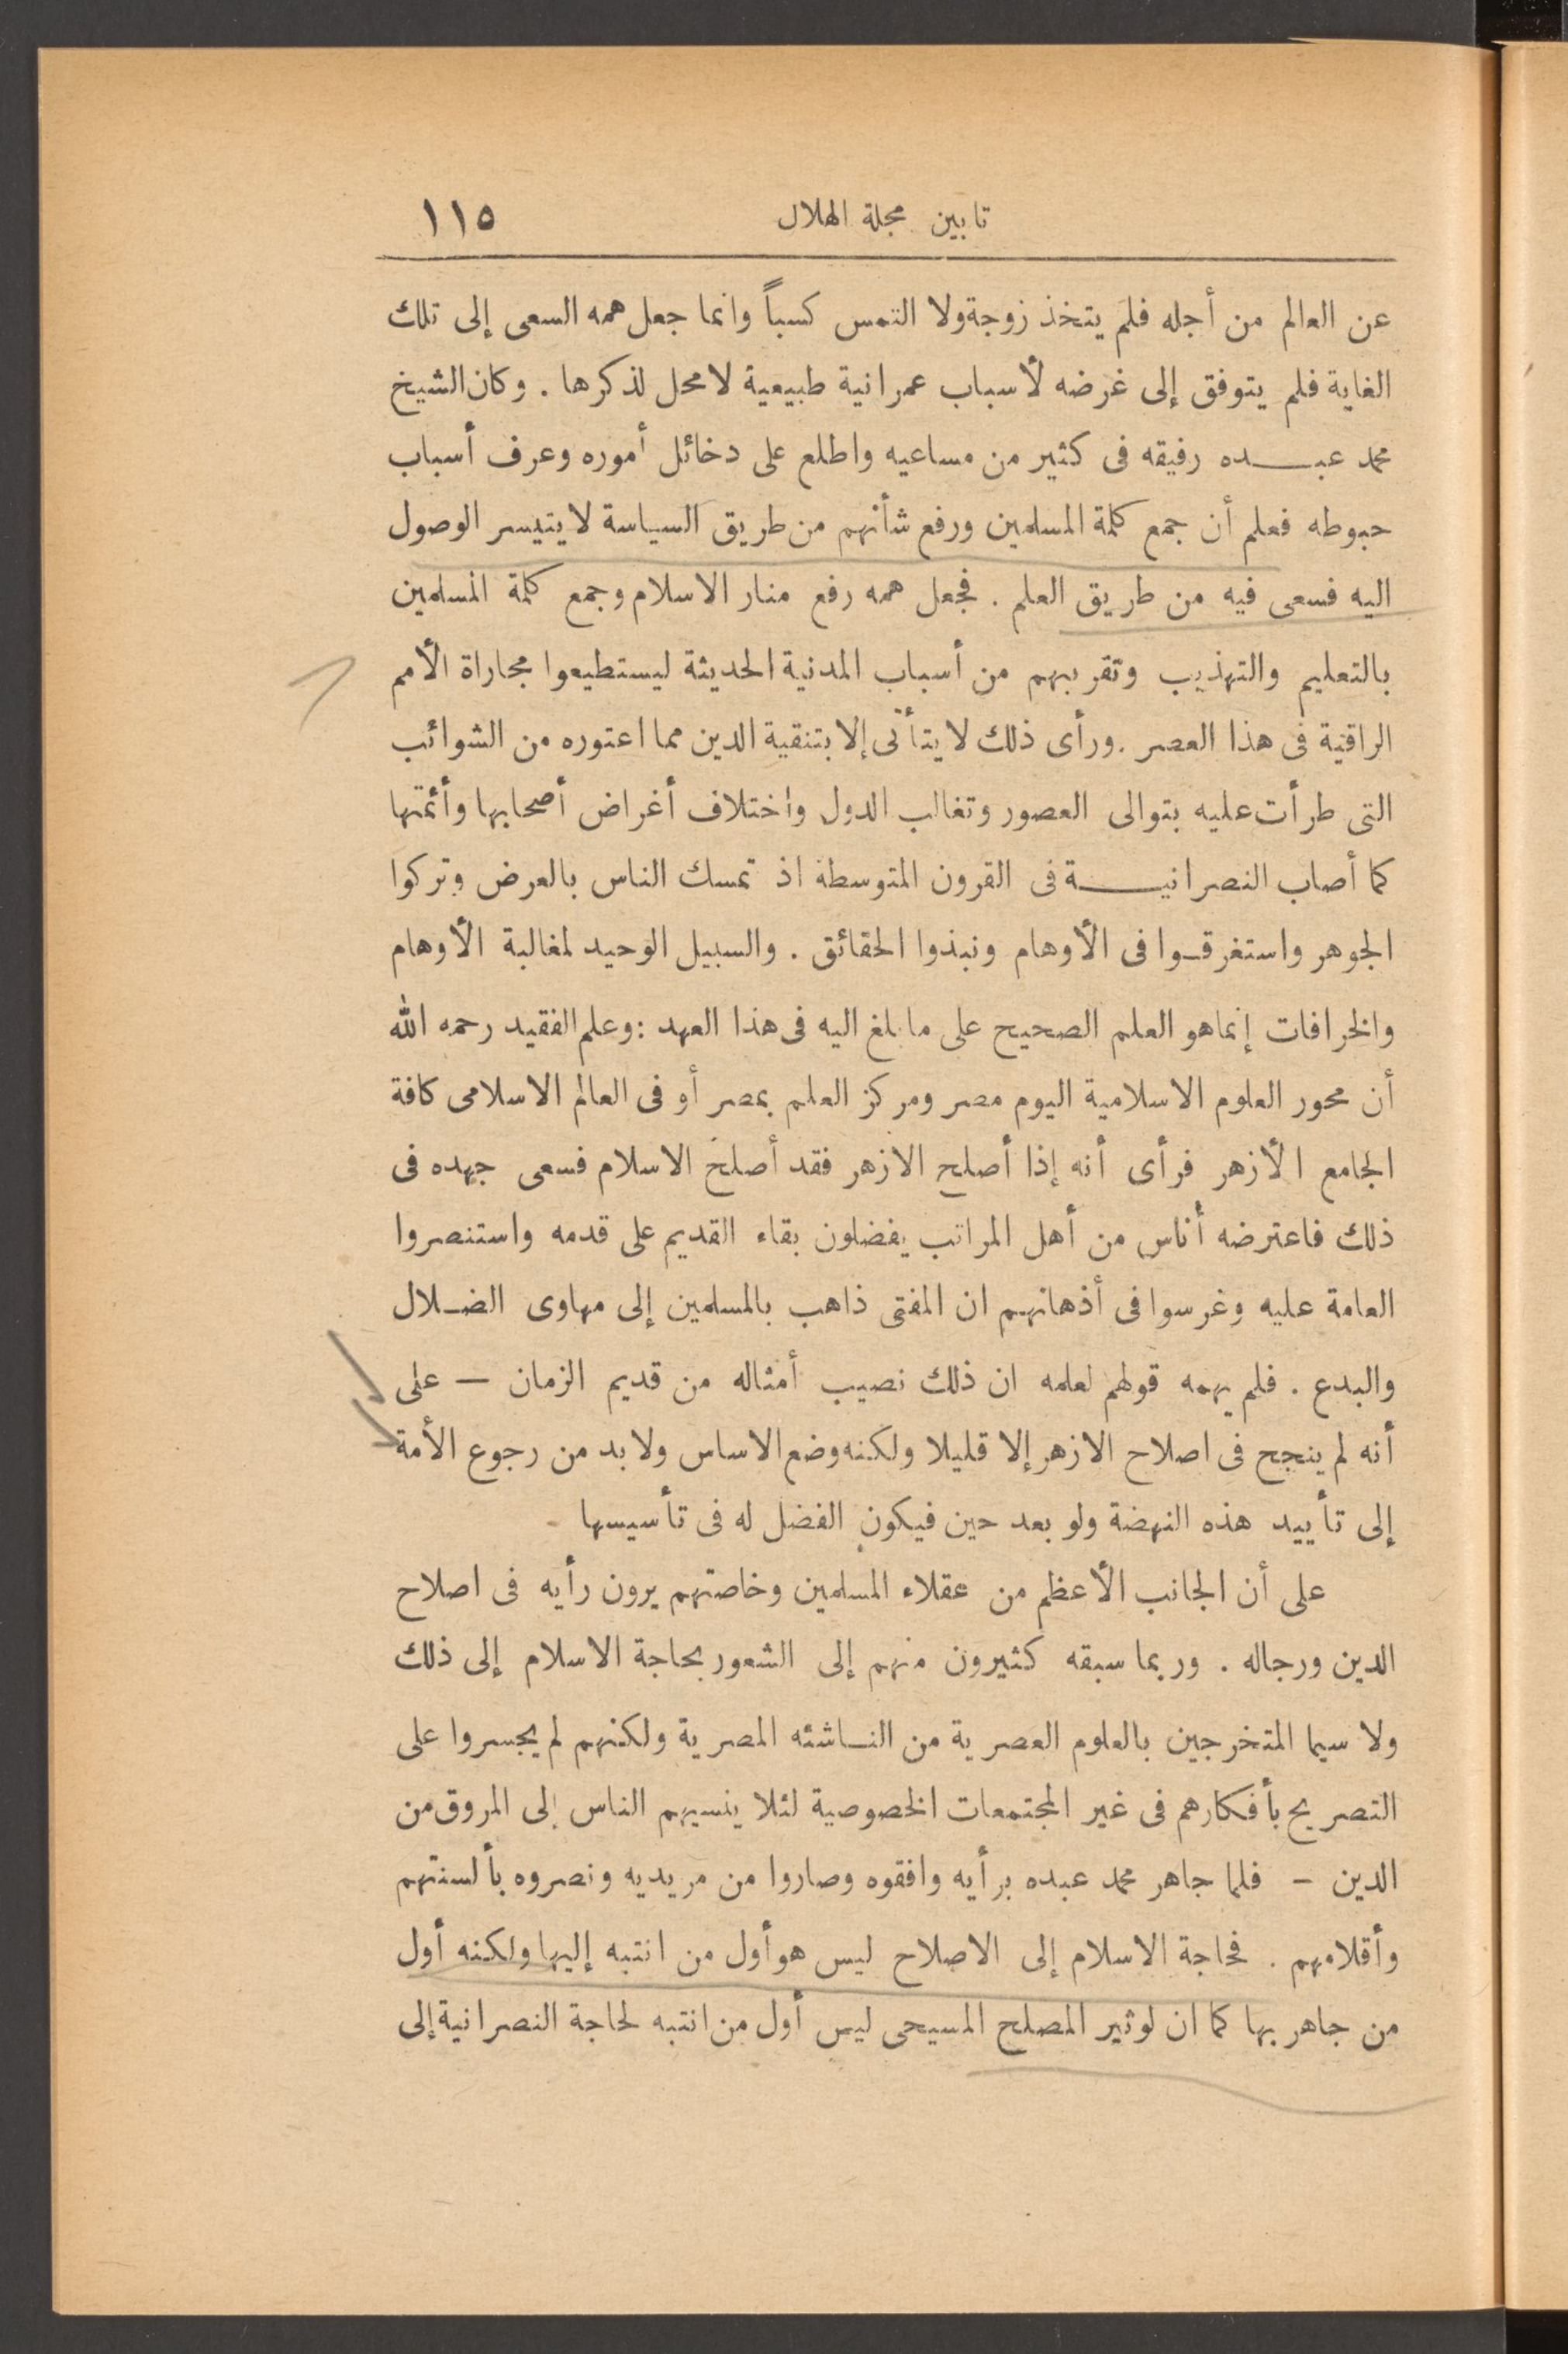 تابين مجلة الهلال ١١٥
عن العالم من أجله فلم يتخذ زوجة ولا التمس كسباً وانما جعل همه السعى إلى تلك
الغاية فلم يتوفق إلى غرضه لأسباب عمرانية طبيعية لا محل لذكرها . وكان الشيخ
محمد عبـــده رفيقه فى كثير من مساعيه واطلع على دخائل أموره وعرف أسباب
حبوطه فعلم أن جمع كلمة المسلمين ورفع شأنهم من طريق السياسة لا يتيسر الوصول
اليه فسعى فيه من طريق العلم . فجعل همه رفع منار الاسلام وجمع كلمة المسلمين
بالتعليم والتهذيب وتقريبهم من أسباب المدنية الحديثة ليستطيعوا مجاراة الأمم
الراقية فى هذا العصر . ورأى ذلك لا يتأتى إلا بتنقية الدين مما اعتوره من الشوائب
التى طرأت عليه بتوالى العصور وتغالب الدول واختلاف أغراض أصحابها وأئمتها
كما أصاب النصرانيـــة فى القرون المتوسطة اذ تمسك الناس بالعرض وتركوا
الجوهر واستغرقـوا فى الأوهام ونبذوا الحقائق . والسبيل الوحيد لمغالبة الأوهام
والخرافات إنما هو العلم الصحيح على ما بلغ اليه فى هذا العهد : وعلم الفقيد رحمه الله
أن محور العلوم الاسلامية اليوم مصر ومركز العلم بمصر أو فى العالم الاسلامى كافة
الجامع الأزهر فرأى أنه إذا أصلح الازهر فقد أصلح الاسلام فسعى جهده فى
ذلك فاعترضه أناس من أهل المراتب يفضلون بقاء القديم على قدمه واستنصروا
العامة عليه وغرسوا فى أذهانهم ان المفتى ذاهب بالمسلمين إلى مهاوى الضـلال
والبدع . فلم يهمه قولهم لعلمه ان ذلك نصيب أمثاله من قديم الزمان — على
أنه لم ينجح فى اصلاح الازهر إلا قليلا ولكنه وضع الاساس ولا بد من رجوع الأمة
إلى تأييد هذه النهضة ولو بعد حين فيكون الفضل له فى تأسيسها
على أن الجانب الأعظم من عقلاء المسلمين وخاصتهم يرون رأيه فى اصلاح
الدين ورجاله . وربما سبقه كثيرون منهم إلى الشعور بحاجة الاسلام إلى ذلك
ولا سيما المتخرجين بالعلوم العصرية من النـاشئه المصرية ولكنهم لم يجسروا على
التصريح بأفكارهم فى غير المجتمعات الخصوصية لئلا ينسبهم الناس إلى المروق من
الدين – فلما جاهر محمد عبده برأيه وافقوه وصاروا من مريديه ونصروه بألسنتهم
وأقلامهم . فحاجة الاسلام إلى الاصلاح ليس هو أول من انتبه إليها ولكنه أول
من جاهر بها كما ان لوثير المصلح المسيحى ليس أول من انتبه لحاجة النصرانية إلى